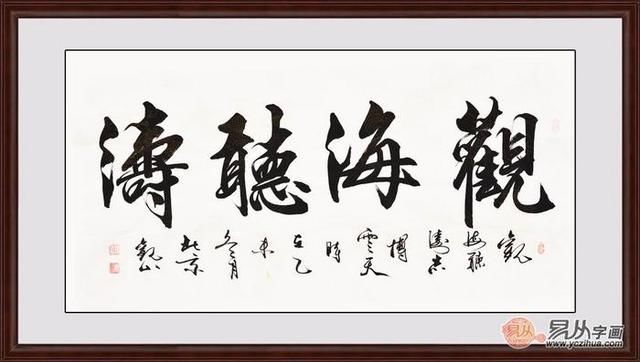 觀海聽濤
觀海聽濤志搏雲天時在乙未冬月北京
易从字画
www.yczihua.com